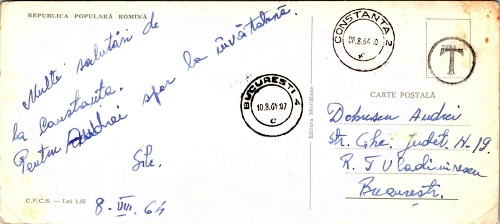 REPUBLICA POPULARA ROMÎNA
Multe salutări de
la Constanta.
Pentru Andrei spor la învătătură.
Sile.
8. VIII. 64
C.P.C.S. — Lei 1,25
BUCURESTI 4
10.8.64.07
c
Editura Meridiane
CONSTANTA 2
08.8.64
T
CARTE POSTALĂ
Dobrescu Andrei
Str. Ghe. Judet. H-19.
R. T Vladimirescu
Bucuresti.